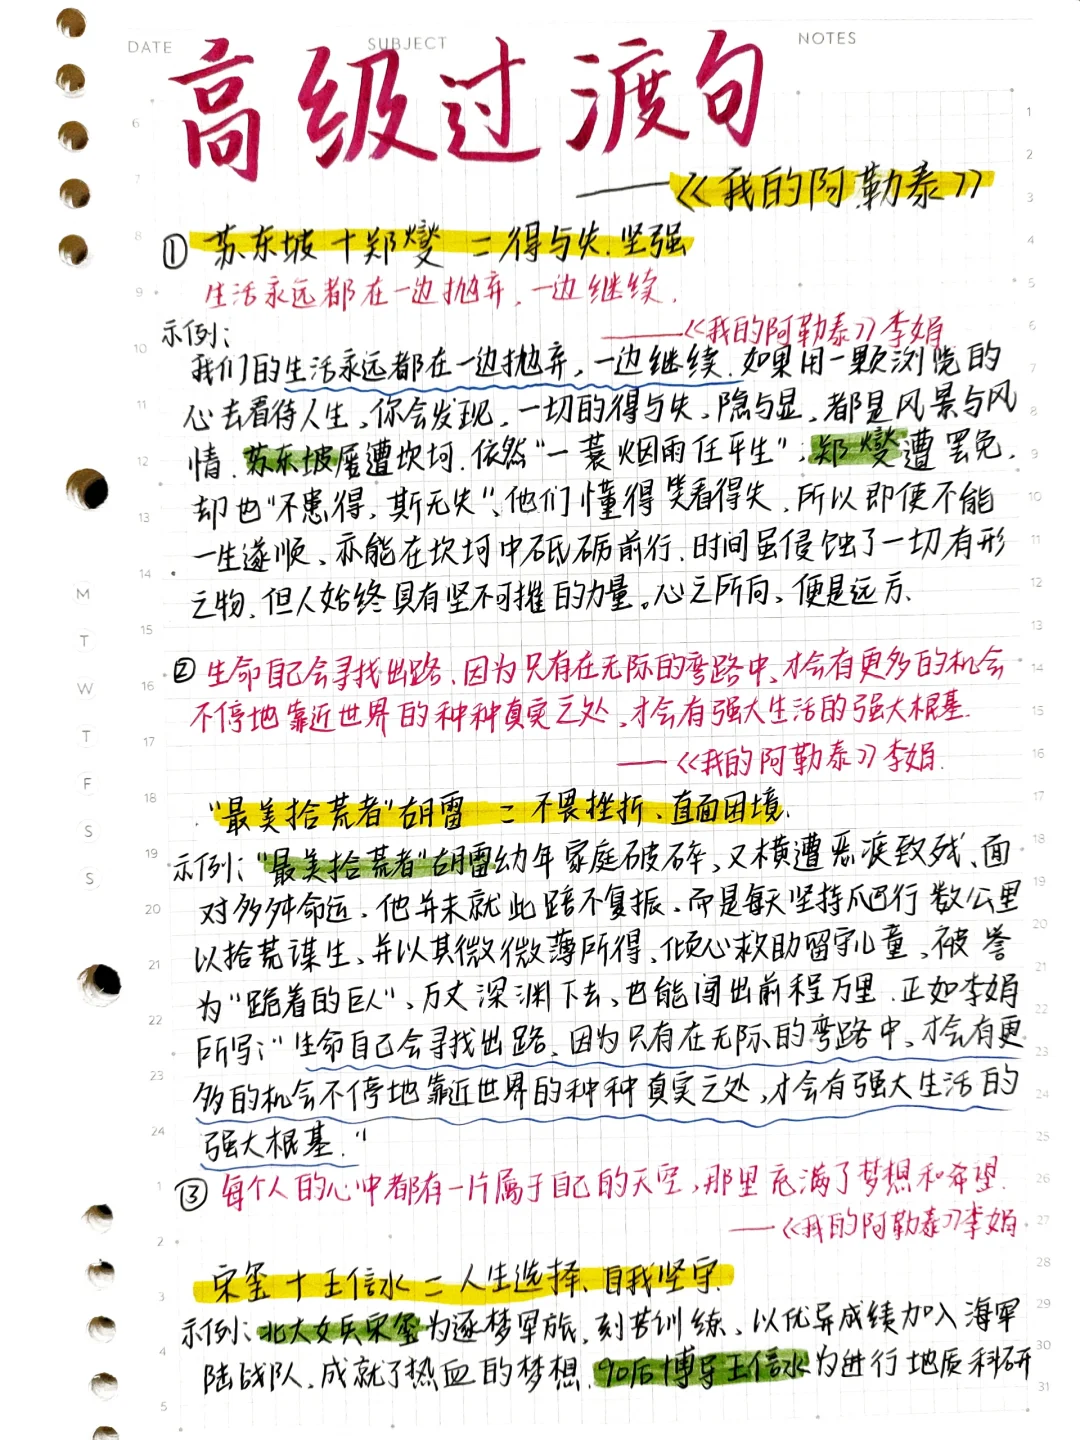 DATE SUBJECT NOTES
高级过渡句
——《我的阿勒泰》
① 苏东坡+郑燮 = 得与失.坚强
生活永远都在一边抛弃,一边继续.
——《我的阿勒泰》李娟
示例:
我们的生活永远都在一边抛弃,一边继续.如果用一颗浏览的
心去看待人生,你会发现,一切的得与失,隐与显,都是风景与风
情.苏东坡屡遭坎坷.依然“一蓑烟雨任平生”;郑燮遭罢免,
却也“不患得,斯无失”、他们懂得笑看得失,所以即使不能
一生遂顺、亦能在坎坷中砥砺前行.时间虽侵蚀了一切有形
之物,但人始终具有坚不可摧的力量。心之所向,便是远方.
② 生命自己会寻找出路.因为只有在无际的弯路中,才会有更多的机会
不停地靠近世界的种种真实之处,才会有强大生活的强大根基.
——《我的阿勒泰》李娟.
“最美拾荒者”胡雷 = 不畏挫折、直面困境.
示例:“最美拾荒者”胡雷幼年家庭破碎,又横遭恶疾致残、面
对多舛命运,他并未就此踣不复振,而是每天坚持爬行数公里
以拾荒谋生,并以其微微薄所得,倾心救助留守儿童,被誉
为“跪着的巨人”,万丈深渊下去,也能闯出前程万里.正如李娟
所写:“生命自己会寻找出路,因为只有在无际的弯路中,才会有更
多的机会不停地靠近世界的种种真实之处,才会有强大生活的
强大根基.”
③ 每个人的心中都有一片属于自己的天空,那里充满了梦想和希望.
——《我的阿勒泰》李娟
宋玺+王信水=人生选择、自我坚守.
示例:北大女兵宋玺为逐梦军旅,刻苦训练、以优异成绩加入海军
陆战队,成就了热血的梦想.90后博导王信水为进行地质科研